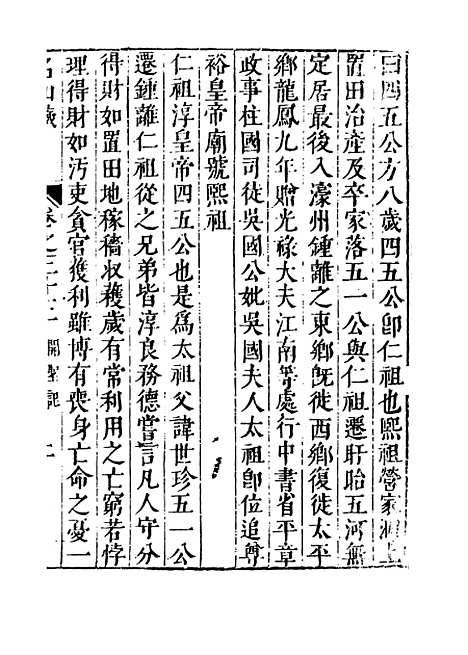 曰四五公方八歲四五公卽仁祖也熙祖營家泗上
置田治產及卒家落五一公與仁祖遷盱眙五河無
定居最後入濠州鍾離之東鄉旣徙西鄉復徙太平
鄉龍鳳九年贈光祿大夫江南等處行中書省平章
政事柱國司徒吳國公妣吳國夫人太祖卽位追尊
裕皇帝廟號熙祖
仁祖淳皇帝四五公也是爲太祖父諱世珍五一公
遷鍾離仁祖從之兄弟皆淳良務德嘗言凡人守分
得財如置田地稼穡收穫歲有常利用之亡窮若悖
理得財如汚吏貪官獲利雖博有喪身亡命之憂一
名山藏 卷之 開聖記 二